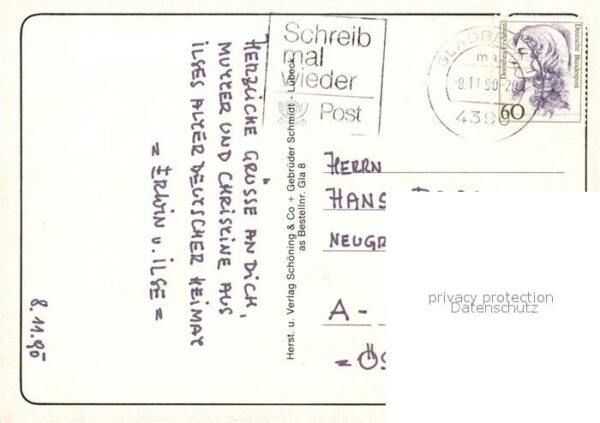 Schreib
mal
wieder
Post
GLADBECK
-8.11.90-20
4390
Deutsche Bundespost
60
HERZLICHE GRÜSSE AN DICH,
MUTTER UND CHRISTINE AUS
ILSES ALTER DEUTSCHER HEIMAT
= ERWIN U. ILSE =
8.11.90
Herst. u. Verlag Schöning & Co + Gebrüder Schmidt - Lübeck
as Bestellnr. Gla 8
HERRN
HANS
NEUGR
A -
= ÖS
privacy protection
Datenschutz